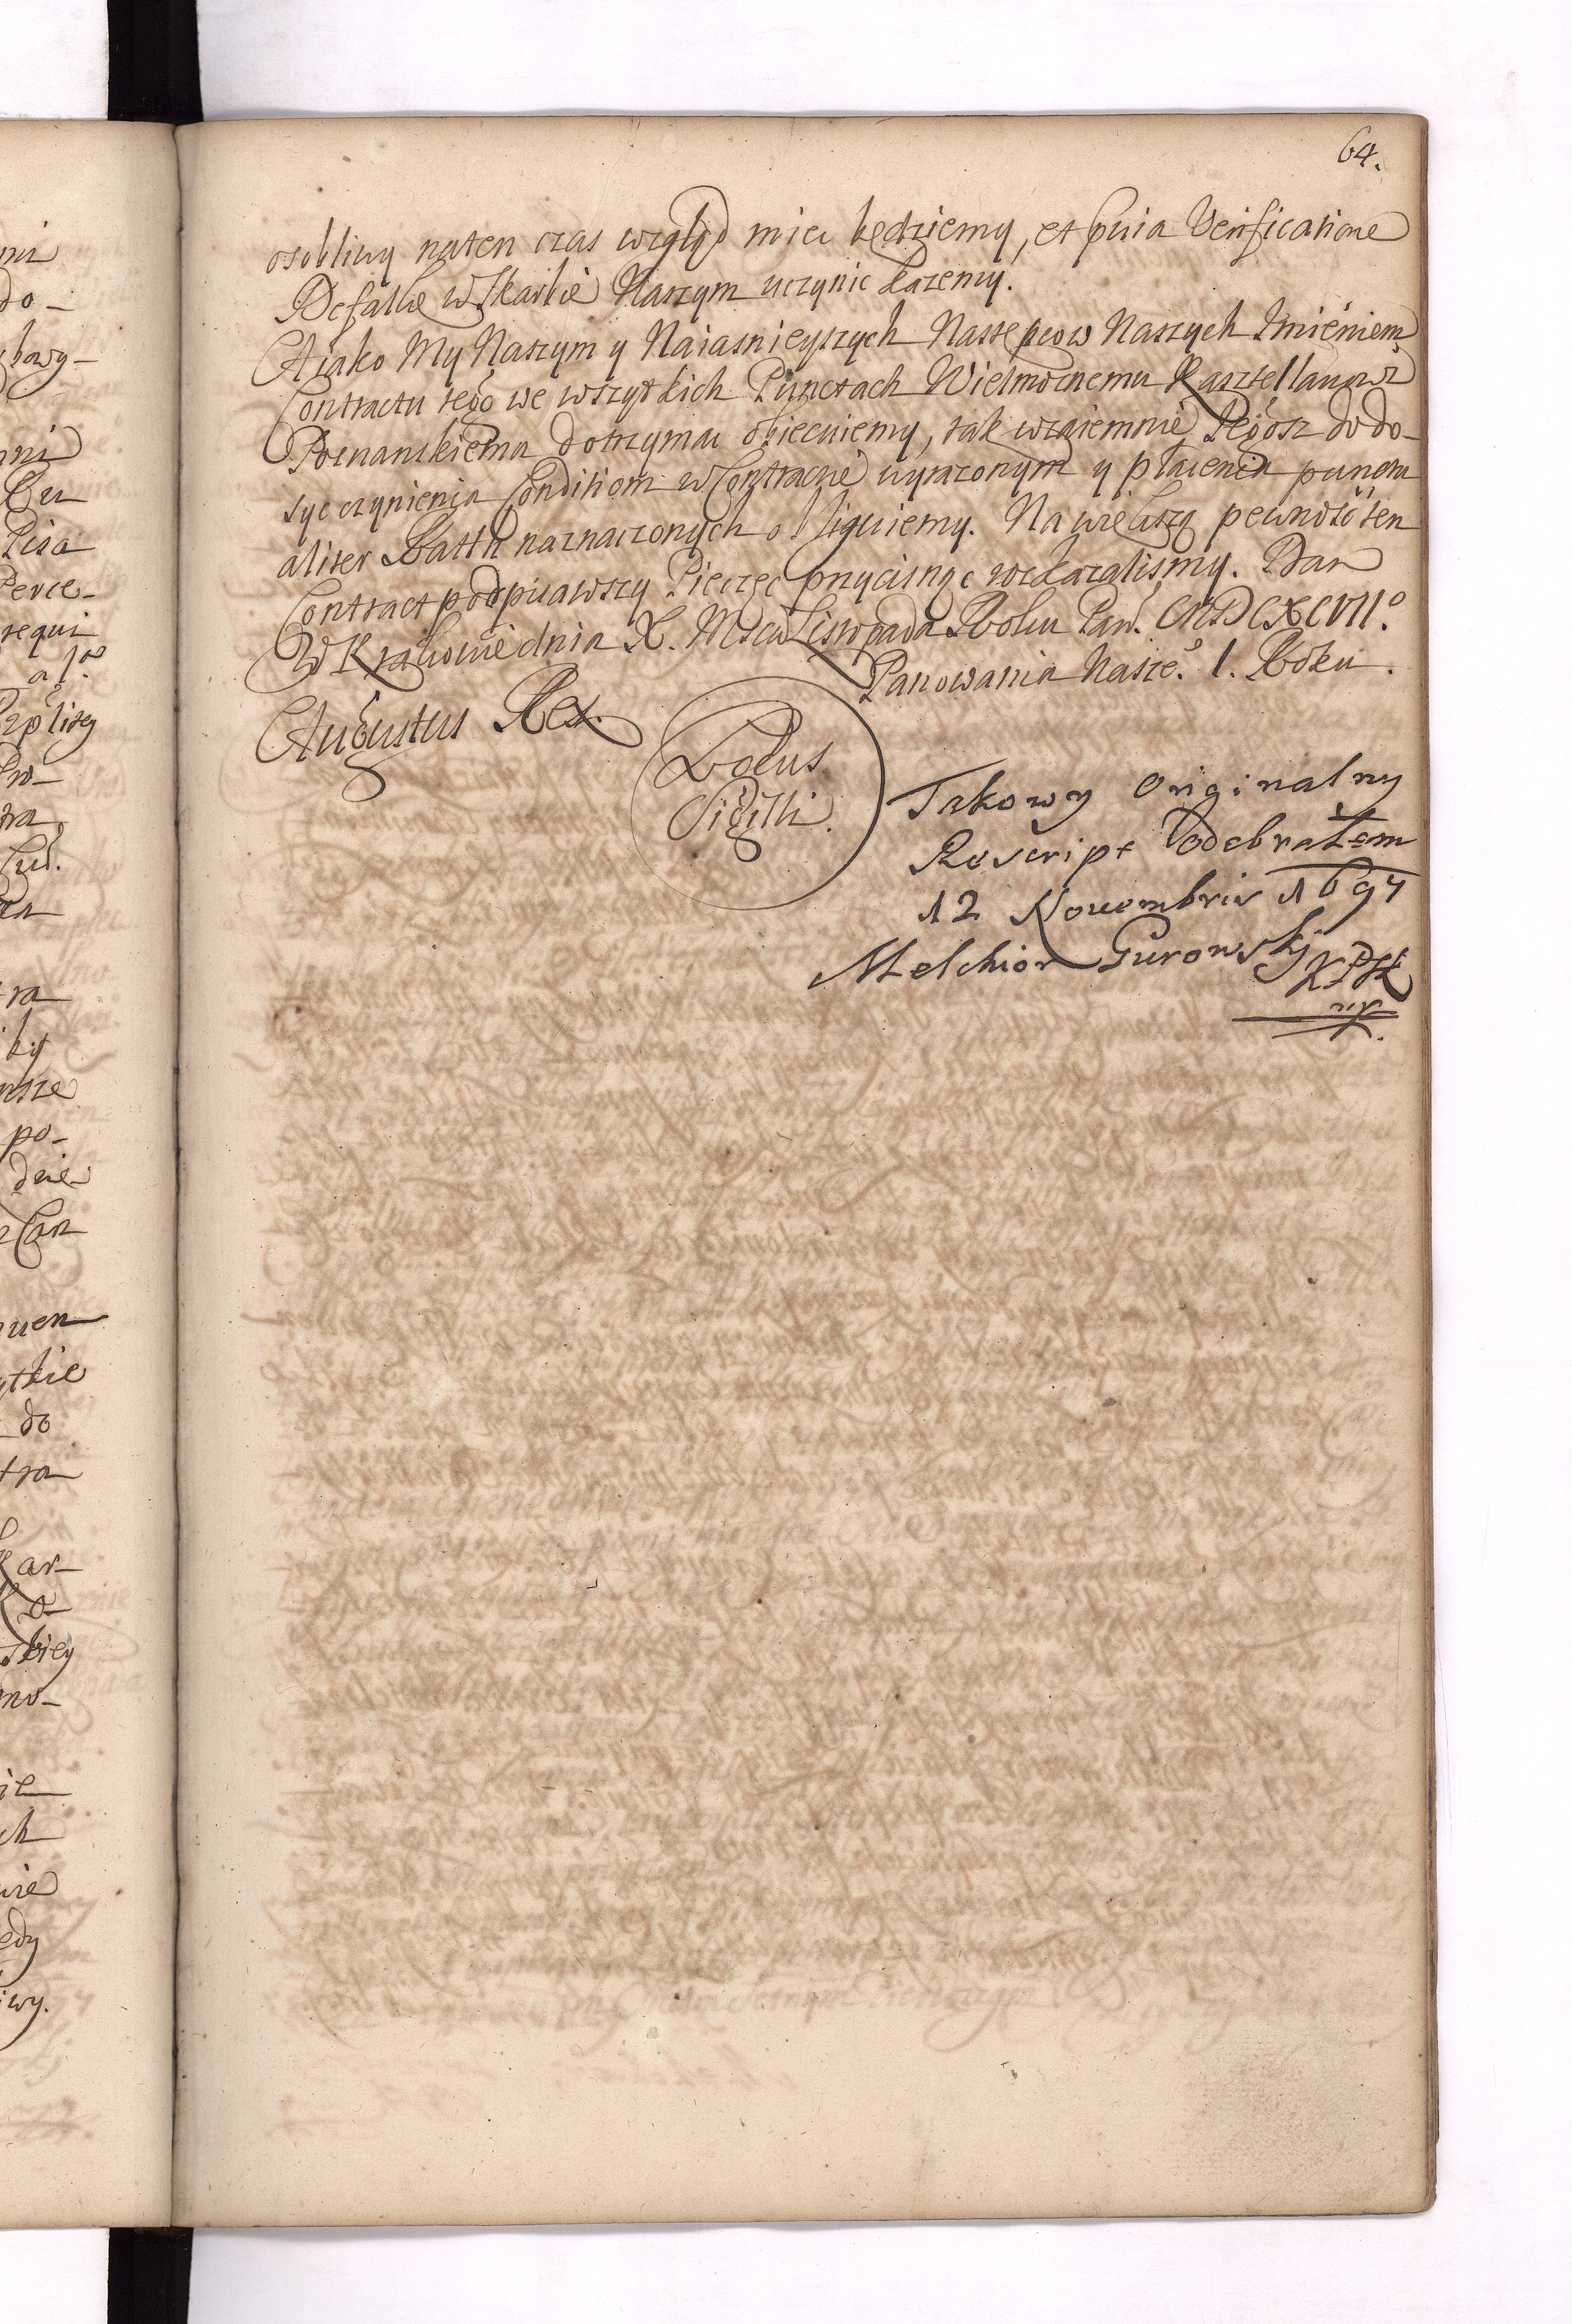 64.
osobliwy naten czas wzgląd mieć będziemy, et pvia Verificatione
Defalkę w Skarbie Naszym uczynic każemy.
A iako My Naszym y Naiasnieyszych Nastepcow Naszych Imieniem
Contractu tego we wszytkich Punctach Wielmoznemu Kasztellanowi
Poznanskiemu dotrzymać obiecuiemy, tak wzaiemnie Tegosz do do-
syc czynienia Conditiom w Contracie wyrazonym y płacenia punctu
aliter Ratth naznaczonych obliguiemy. Na wiekszą pewność ten
Contract podpisawszy Pieczęc przycisnąc rozkazalismy. Dan
W Krakowie dnia X. Msca Listopada Roku Pan. MDCXCVII.º
Panowania Nasze. 1. Roku.
Augustus Rex.
Locus
Sigilli.
Takowy Originalny
Rescript odebrałem
12 Nouembris 1697
Melchior Gurowsky KPSK
mp.